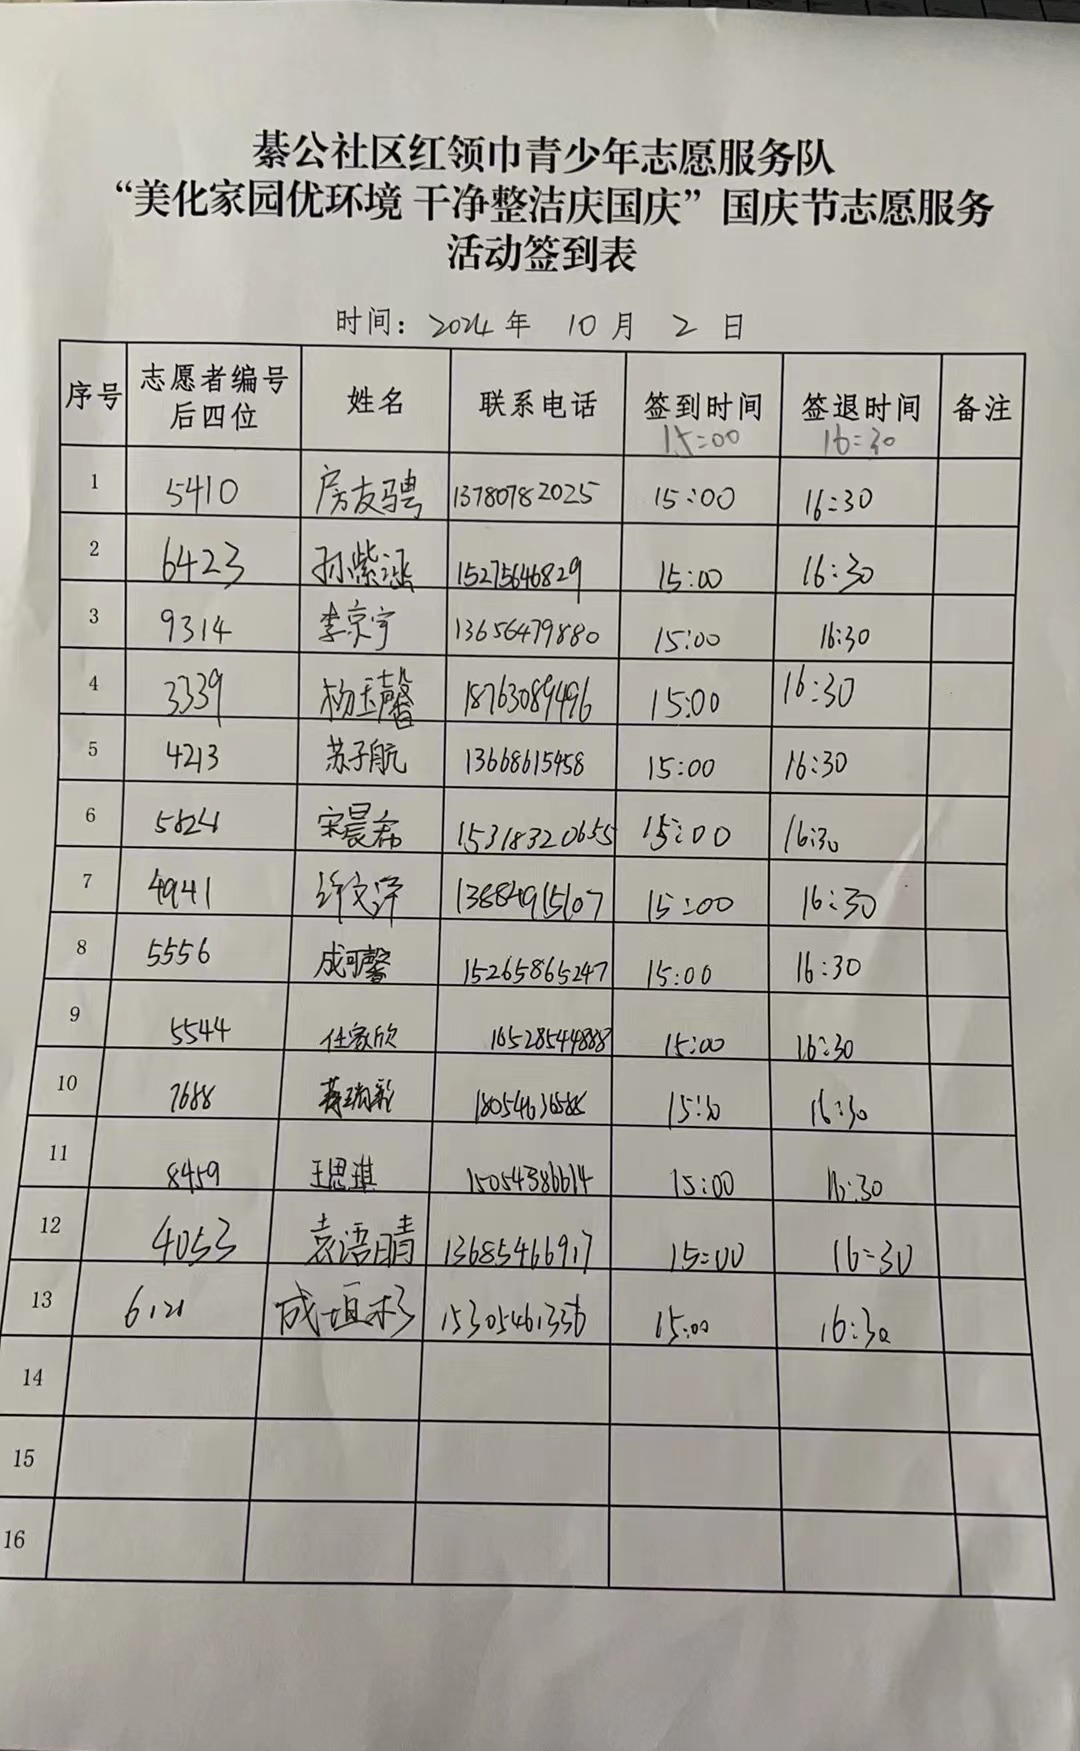 綦公社区红领巾青少年志愿服务队
“美化家园优环境 干净整洁庆国庆”国庆节志愿服务
活动签到表
时间：2024年 10月 2日
序号 志愿者编号后四位 姓名 联系电话 签到时间 15:00 签退时间 16:30 备注
1 5410 房友骋 13780782025 15:00 16:30
2 6423 孙紫涵 15275646829 15:00 16:30
3 9314 李京宇 13656479880 15:00 16:30
4 3339 杨玉馨 18763089496 15:00 16:30
5 4213 苏子航 13668615458 15:00 16:30
6 宋晨希 15318320655 15:00 16:30
7 4941 许文泽 13884915107 15:00 16:30
8 5556 成可馨 15265865247 15:00 16:30
9 5544 任家欣 16528544888 15:00 16:30
10 7688 16:30
11 8459 王思琪 15054386614 15:00 16:30
12 4053 袁语晴 13685466917 15:00 16:30
13 6121 成垣杉 15305461336 15:00 16:30
14
15
16